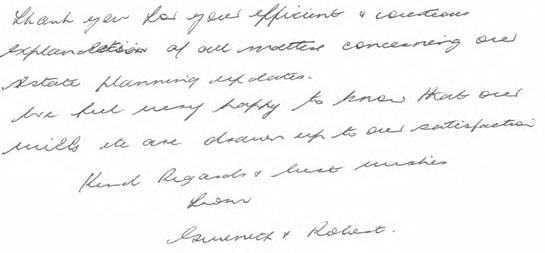 Thank you for your efficient & courteous
explanation of all matters concerning our
estate planning updates.
We feel very happy to know that our
wills etc are drawn up to our satisfaction
Kind Regards & best wishes
from
Gweneth & Robert.